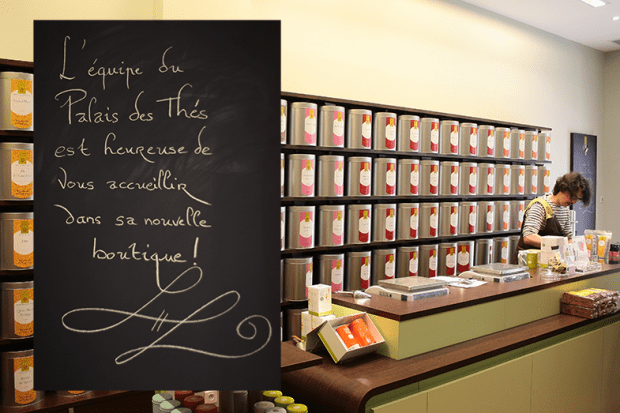 L'équipe du
Palais des Thés
est heureuse de
vous accueillir
dans sa nouvelle
boutique !